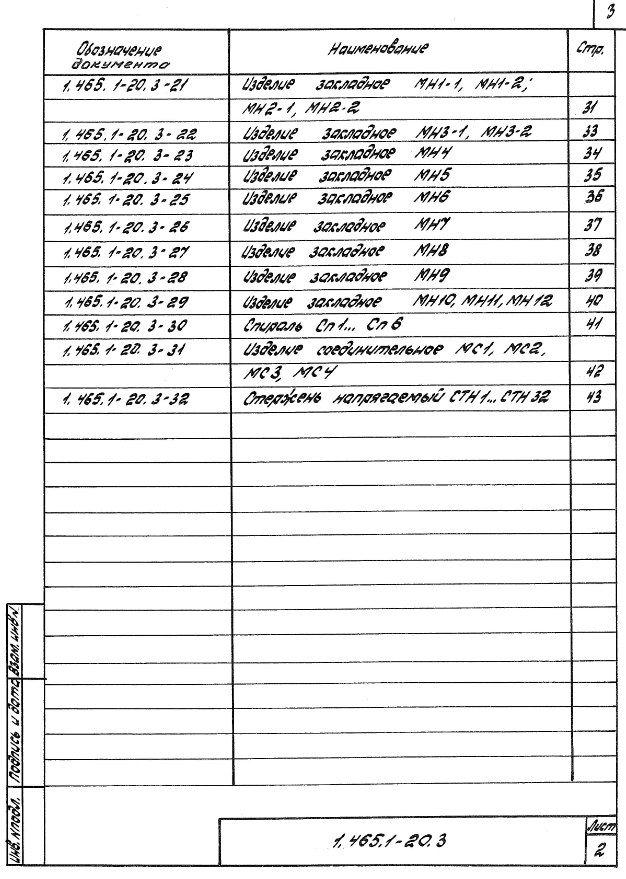 3
Обозначение документа Наименование Стр.
1.465.1-20.3-21 Изделие закладное МН1-1, МН1-2;
МН2-1, МН2-2 31
1.465.1-20.3-22 Изделие закладное МН3-1, МН3-2 33
1.465.1-20.3-23 Изделие закладное МН4 34
1.465.1-20.3-24 Изделие закладное МН5 35
1.465.1-20.3-25 Изделие закладное МН6 36
1.465.1-20.3-26 Изделие закладное МН7 37
1.465.1-20.3-27 Изделие закладное МН8 38
1.465.1-20.3-28 Изделие закладное МН9 39
1.465.1-20.3-29 Изделие закладное МН10, МН11, МН12 40
1.465.1-20.3-30 Спираль Сп1... Сп6 41
1.465.1-20.3-31 Изделие соединительное МС1, МС2,
МС3, МС4 42
1.465.1-20.3-32 Стержень напрягаемый СТН1... СТН32 43
Взам. инв№
Подпись и дата
Инв. №подл.
1.465.1-20.3
Лист
2